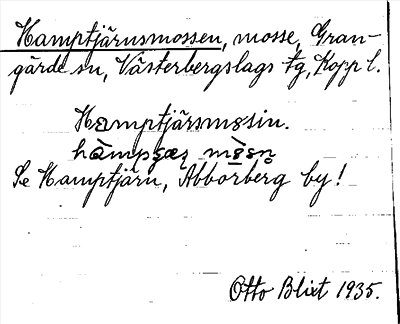 Hamptjärnsmossen, mosse, Gran-
gärde sn, Västerbergslags tg, Kopp l.
Hamptjärsmosin.
Se Hamptjärn, Abborberg by!
Otto Blixt 1935.